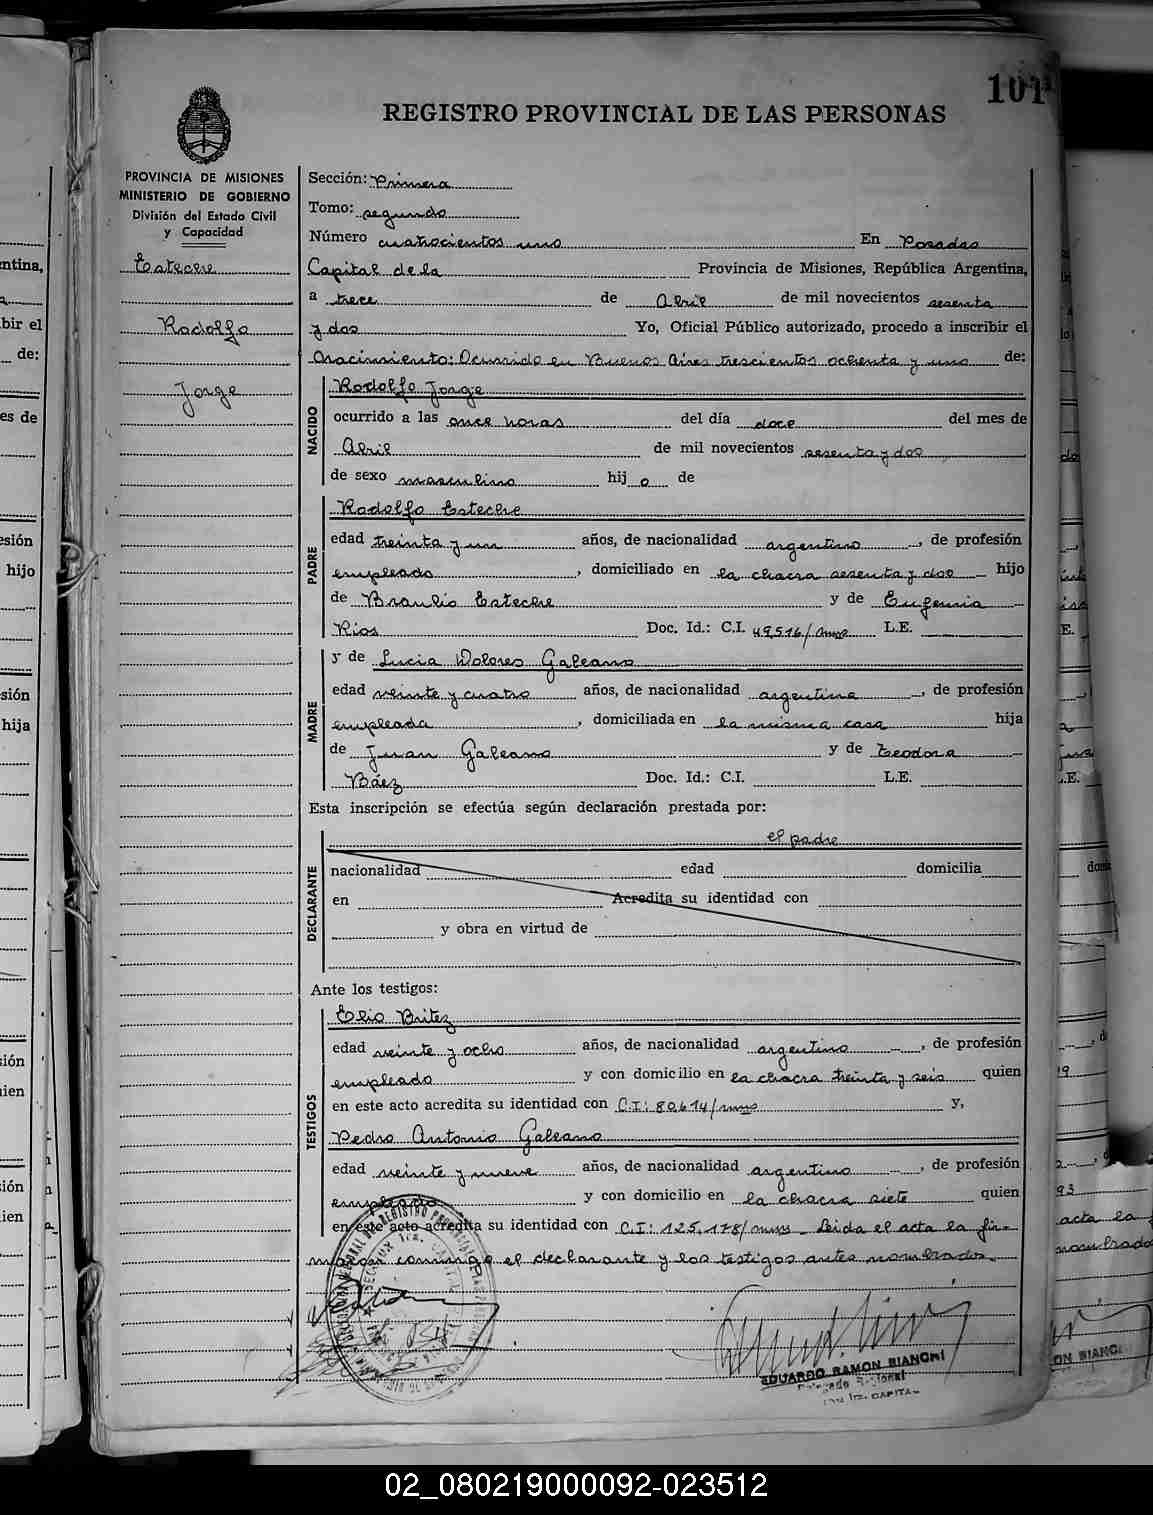 101
REGISTRO PROVINCIAL DE LAS PERSONAS
PROVINCIA DE MISIONES
MINISTERIO DE GOBIERNO
División del Estado Civil
y Capacidad
Esteche
Rodolfo
Jorge
Sección: Primera
Tomo: segundo
Número cuatrocientos uno En Posadas
Capital de la Provincia de Misiones, República Argentina,
a trece de Abril de mil novecientos sesenta
y dos Yo, Oficial Público autorizado, procedo a inscribir el
nacimiento: Ocurrido en Buenos Aires trescientos ochenta y uno de:
NACIDO
Rodolfo Jorge
ocurrido a las once horas del día doce del mes de
Abril de mil novecientos sesenta y dos
de sexo masculino hij o de
PADRE
Rodolfo Esteche
edad treinta y un años, de nacionalidad argentino, de profesión
empleado, domiciliado en la chacra sesenta y dos hijo
de Braulio Esteche y de Eugenia
Rios Doc. Id.: C.I. 49,516/ L.E.
MADRE
y de Lucia Dolores Galeano
edad veinte y cuatro años, de nacionalidad argentina, de profesión
empleada, domiciliada en la misma casa hija
de Juan Galeano y de Teodora
Báez Doc. Id.: C.I. L.E.
Esta inscripción se efectúa según declaración prestada por:
DECLARANTE
el padre
nacionalidad edad domicilia
en Acredita su identidad con
y obra en virtud de
Ante los testigos:
TESTIGOS
Elio Britez
edad veinte y ocho años, de nacionalidad argentino, de profesión
empleado y con domicilio en la chacra treinta y seis quien
en este acto acredita su identidad con C.I: 80,614/ y,
Pedro Antonio Galeano
edad veinte y nueve años, de nacionalidad argentino, de profesión
empleado y con domicilio en la chacra siete quien
en este acto acredita su identidad con C.I: 125,178/ Leida el acta la fir-
maron conmigo el declarante y los testigos antes nombrados.
EDUARDO RAMON BIANCHI
Delegado Regional
CAPITAL
02_080219000092-023512